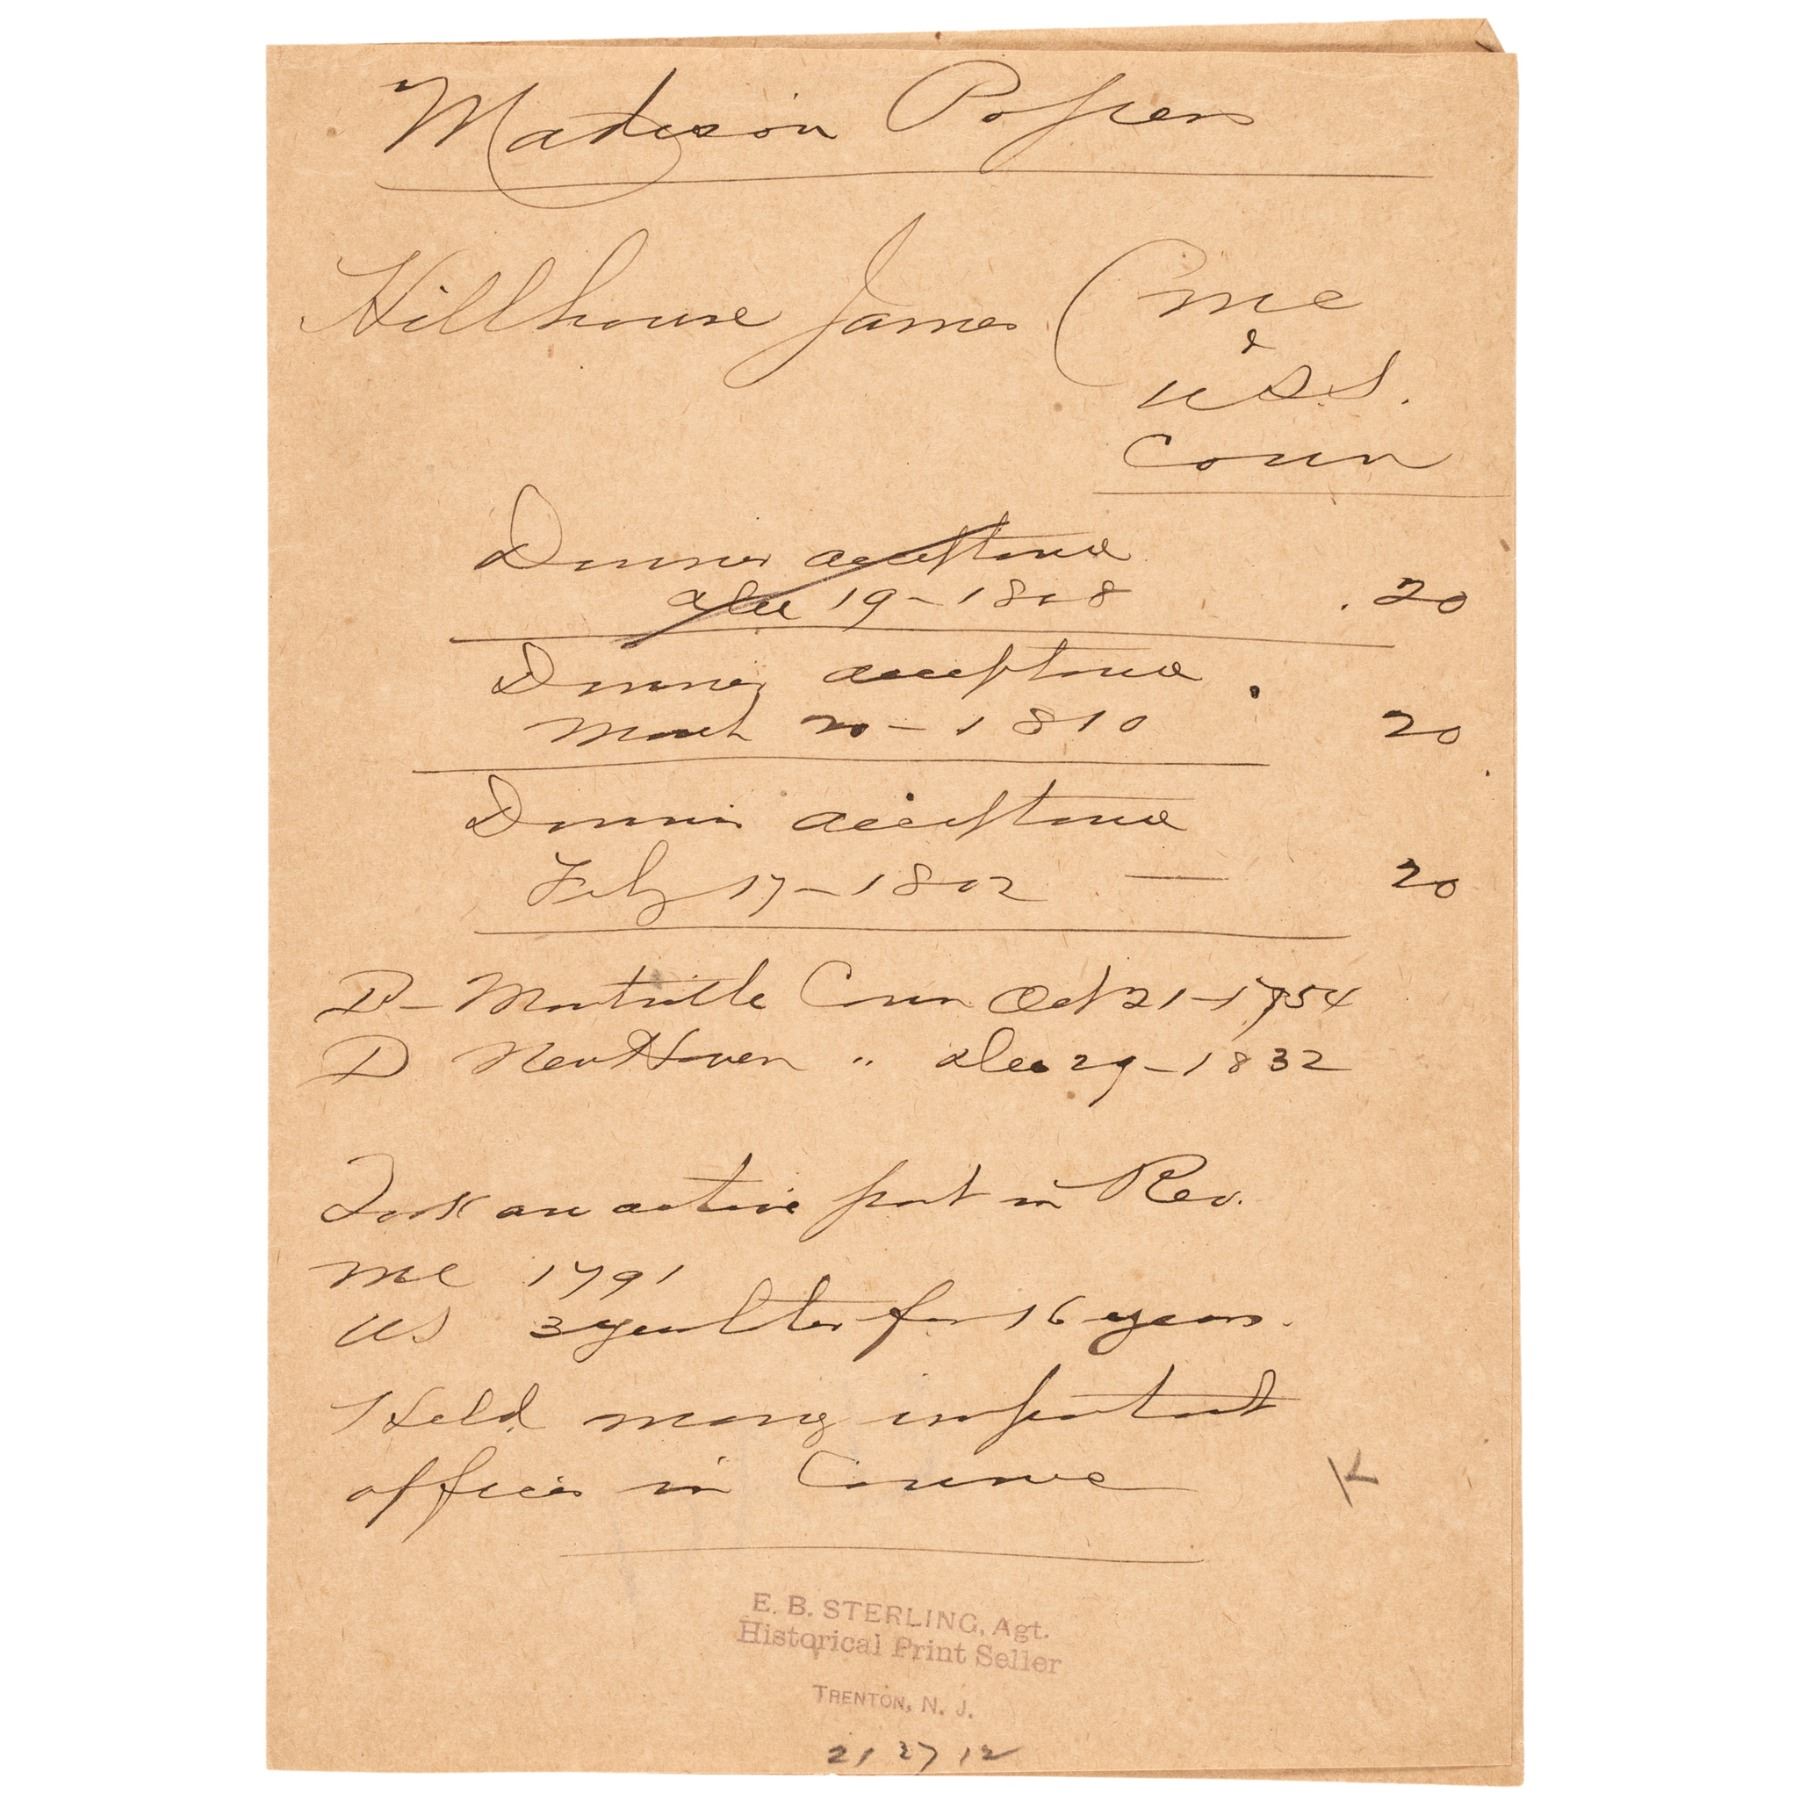 Madison Papers
Hillhouse James ( MC
&
U.S.S.
Conn
Dinner acceptance
Dec 19 - 1808 . 20
Dinner acceptance .
March 20 - 1810 20
Dinner acceptance
Feby 17 - 1802 — 20
B - Montville Conn Oct 21 - 1754
D New Haven " Dec 29 - 1832
Took an active part in Rev.
MC 1791
US 3 year later for 16 years.
Held many important
offices in Conn
K
E. B. STERLING, Agt.
Historical Print Seller
TRENTON, N. J.
21 27 12